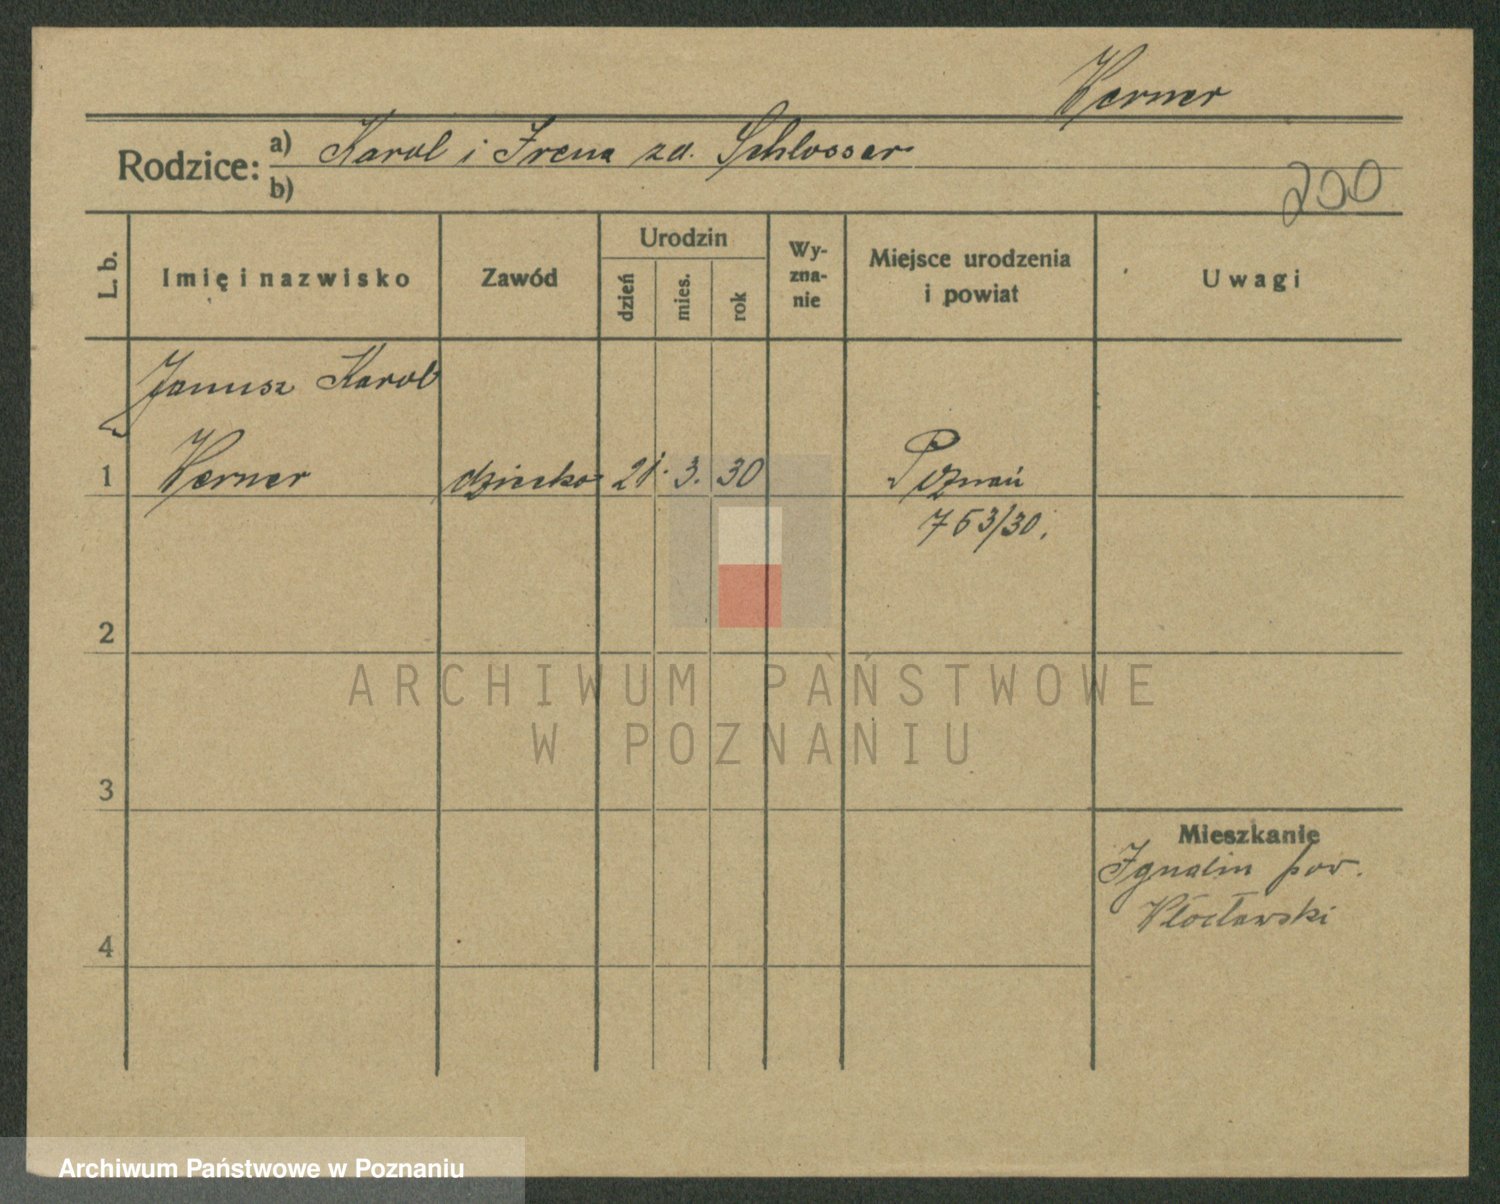 Werner
Rodzice: a) Karol i Irena zd. Schlosser
b)
200
L. b. Imię i nazwisko Zawód Urodzin dzień mies. rok Wyzna-nie Miejsce urodzenia i powiat Uwagi
Janusz Karol
1 Werner dziecko 21. 3. 30 Poznań
763/30.
2
3
Mieszkanie
Ignalin pow.
Włocławski
4
ARCHIWUM PAŃSTWOWE
W POZNANIU
Archiwum Państwowe w Poznaniu